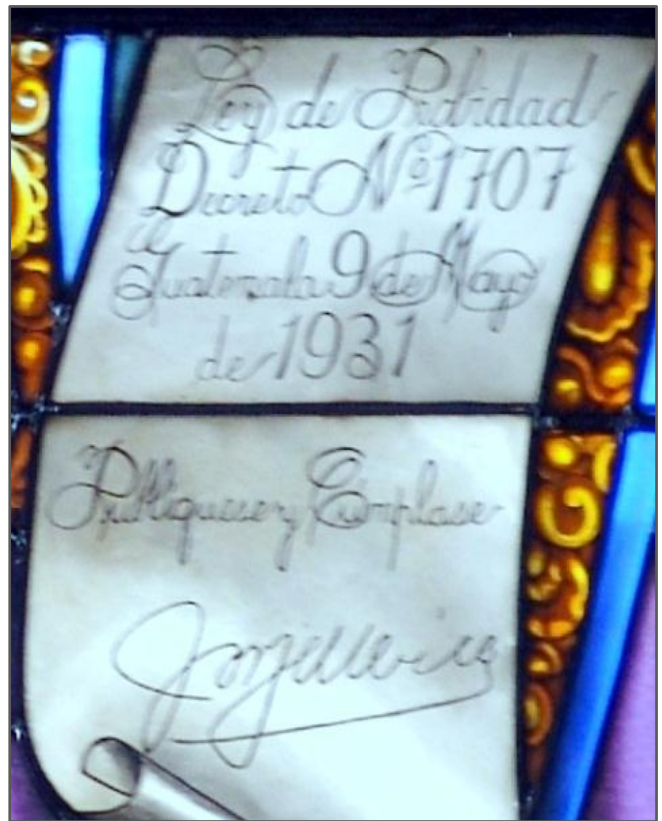 Ley de Probidad
Decreto Nº 1707
Guatemala 9 de Mayo
de 1931
Publíquese y Cúmplase
Jorge Ubico